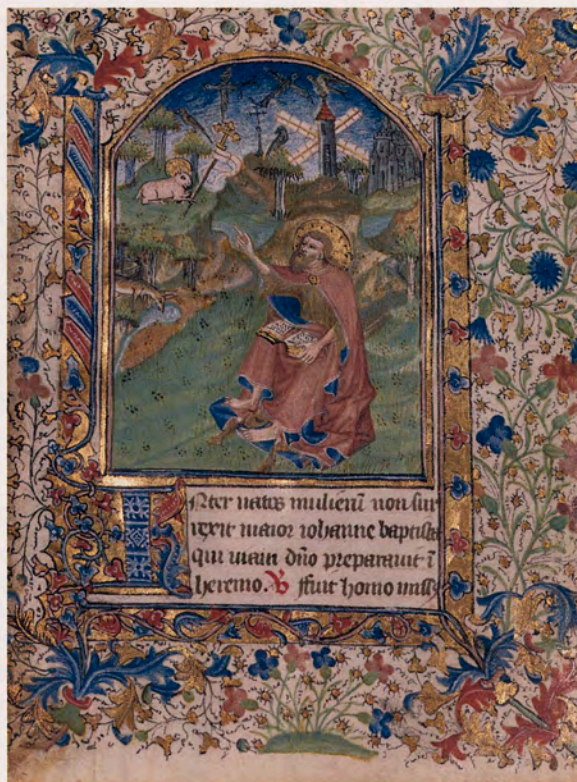 Inter natos mulierū non sur
rexit maior iohanne baptista
qui uiam dño preparauit ī
heremo. ℣ ffuit homo miss